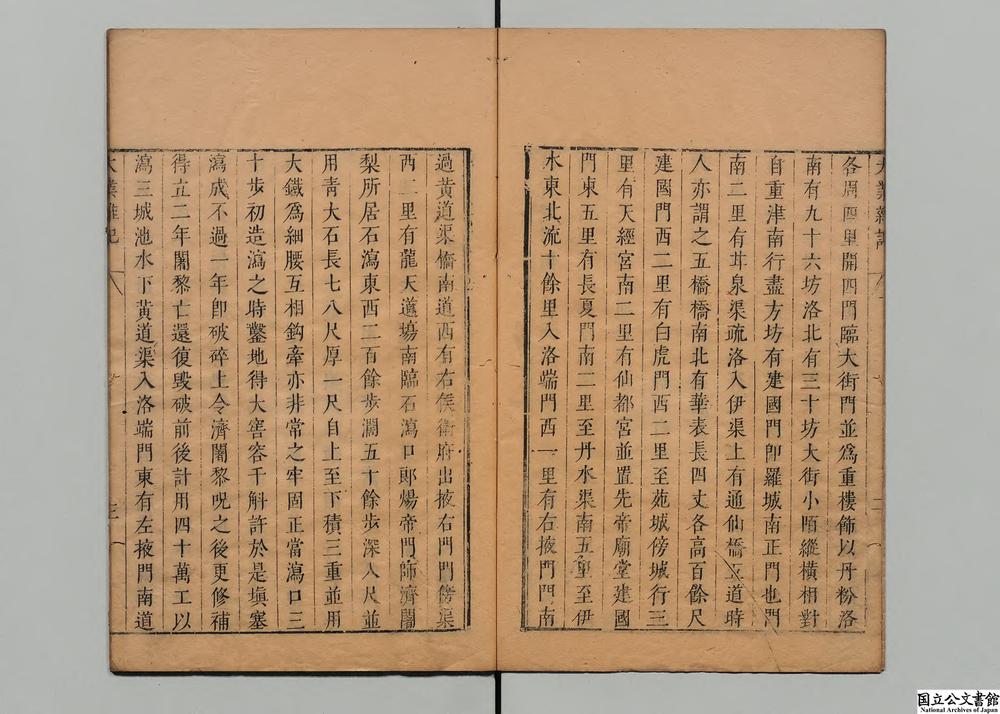 大業雜記
各周四里開四門臨大街門並爲重樓飾以丹粉洛
南有九十六坊洛北有三十坊大街小陌縱橫相對
自重津南行盡方坊有建國門卽羅城南正門也門
南二里有甘泉渠疏洛入伊渠上有通仙橋五道時
人亦謂之五橋橋南北有華表長四丈各高百餘尺
建國門西二里有白虎門西二里至苑城傍城行三
里有天經宮南二里有仙都宮並置先帝廟堂建國
門東五里有長夏門南二里至丹水渠南五里至伊
水東北流十餘里入洛端門西一里有右掖門門南
過黃道渠橋南道西有右候衛府出掖右門門傍渠
西二里有龍天道場南臨石瀉口郎煬帝門師濟闍
梨所居石瀉東西二百餘步濶五十餘步深八尺並
用青大石長七八尺厚一尺自上至下積三重並用
大鐵爲細腰互相鈎牽亦非常之牢固正當瀉口三
十步初造瀉之時鑿地得大窖容千斛許於是塡塞
瀉成不過一年卽破碎上令濟闍黎呪之後更修補
得立二年闍黎亡還復毀破前後計用四十萬工以
瀉三城池水下黃道渠入洛端門東有左掖門南道
大業雜記
三
国立公文書館
National Archives of Japan